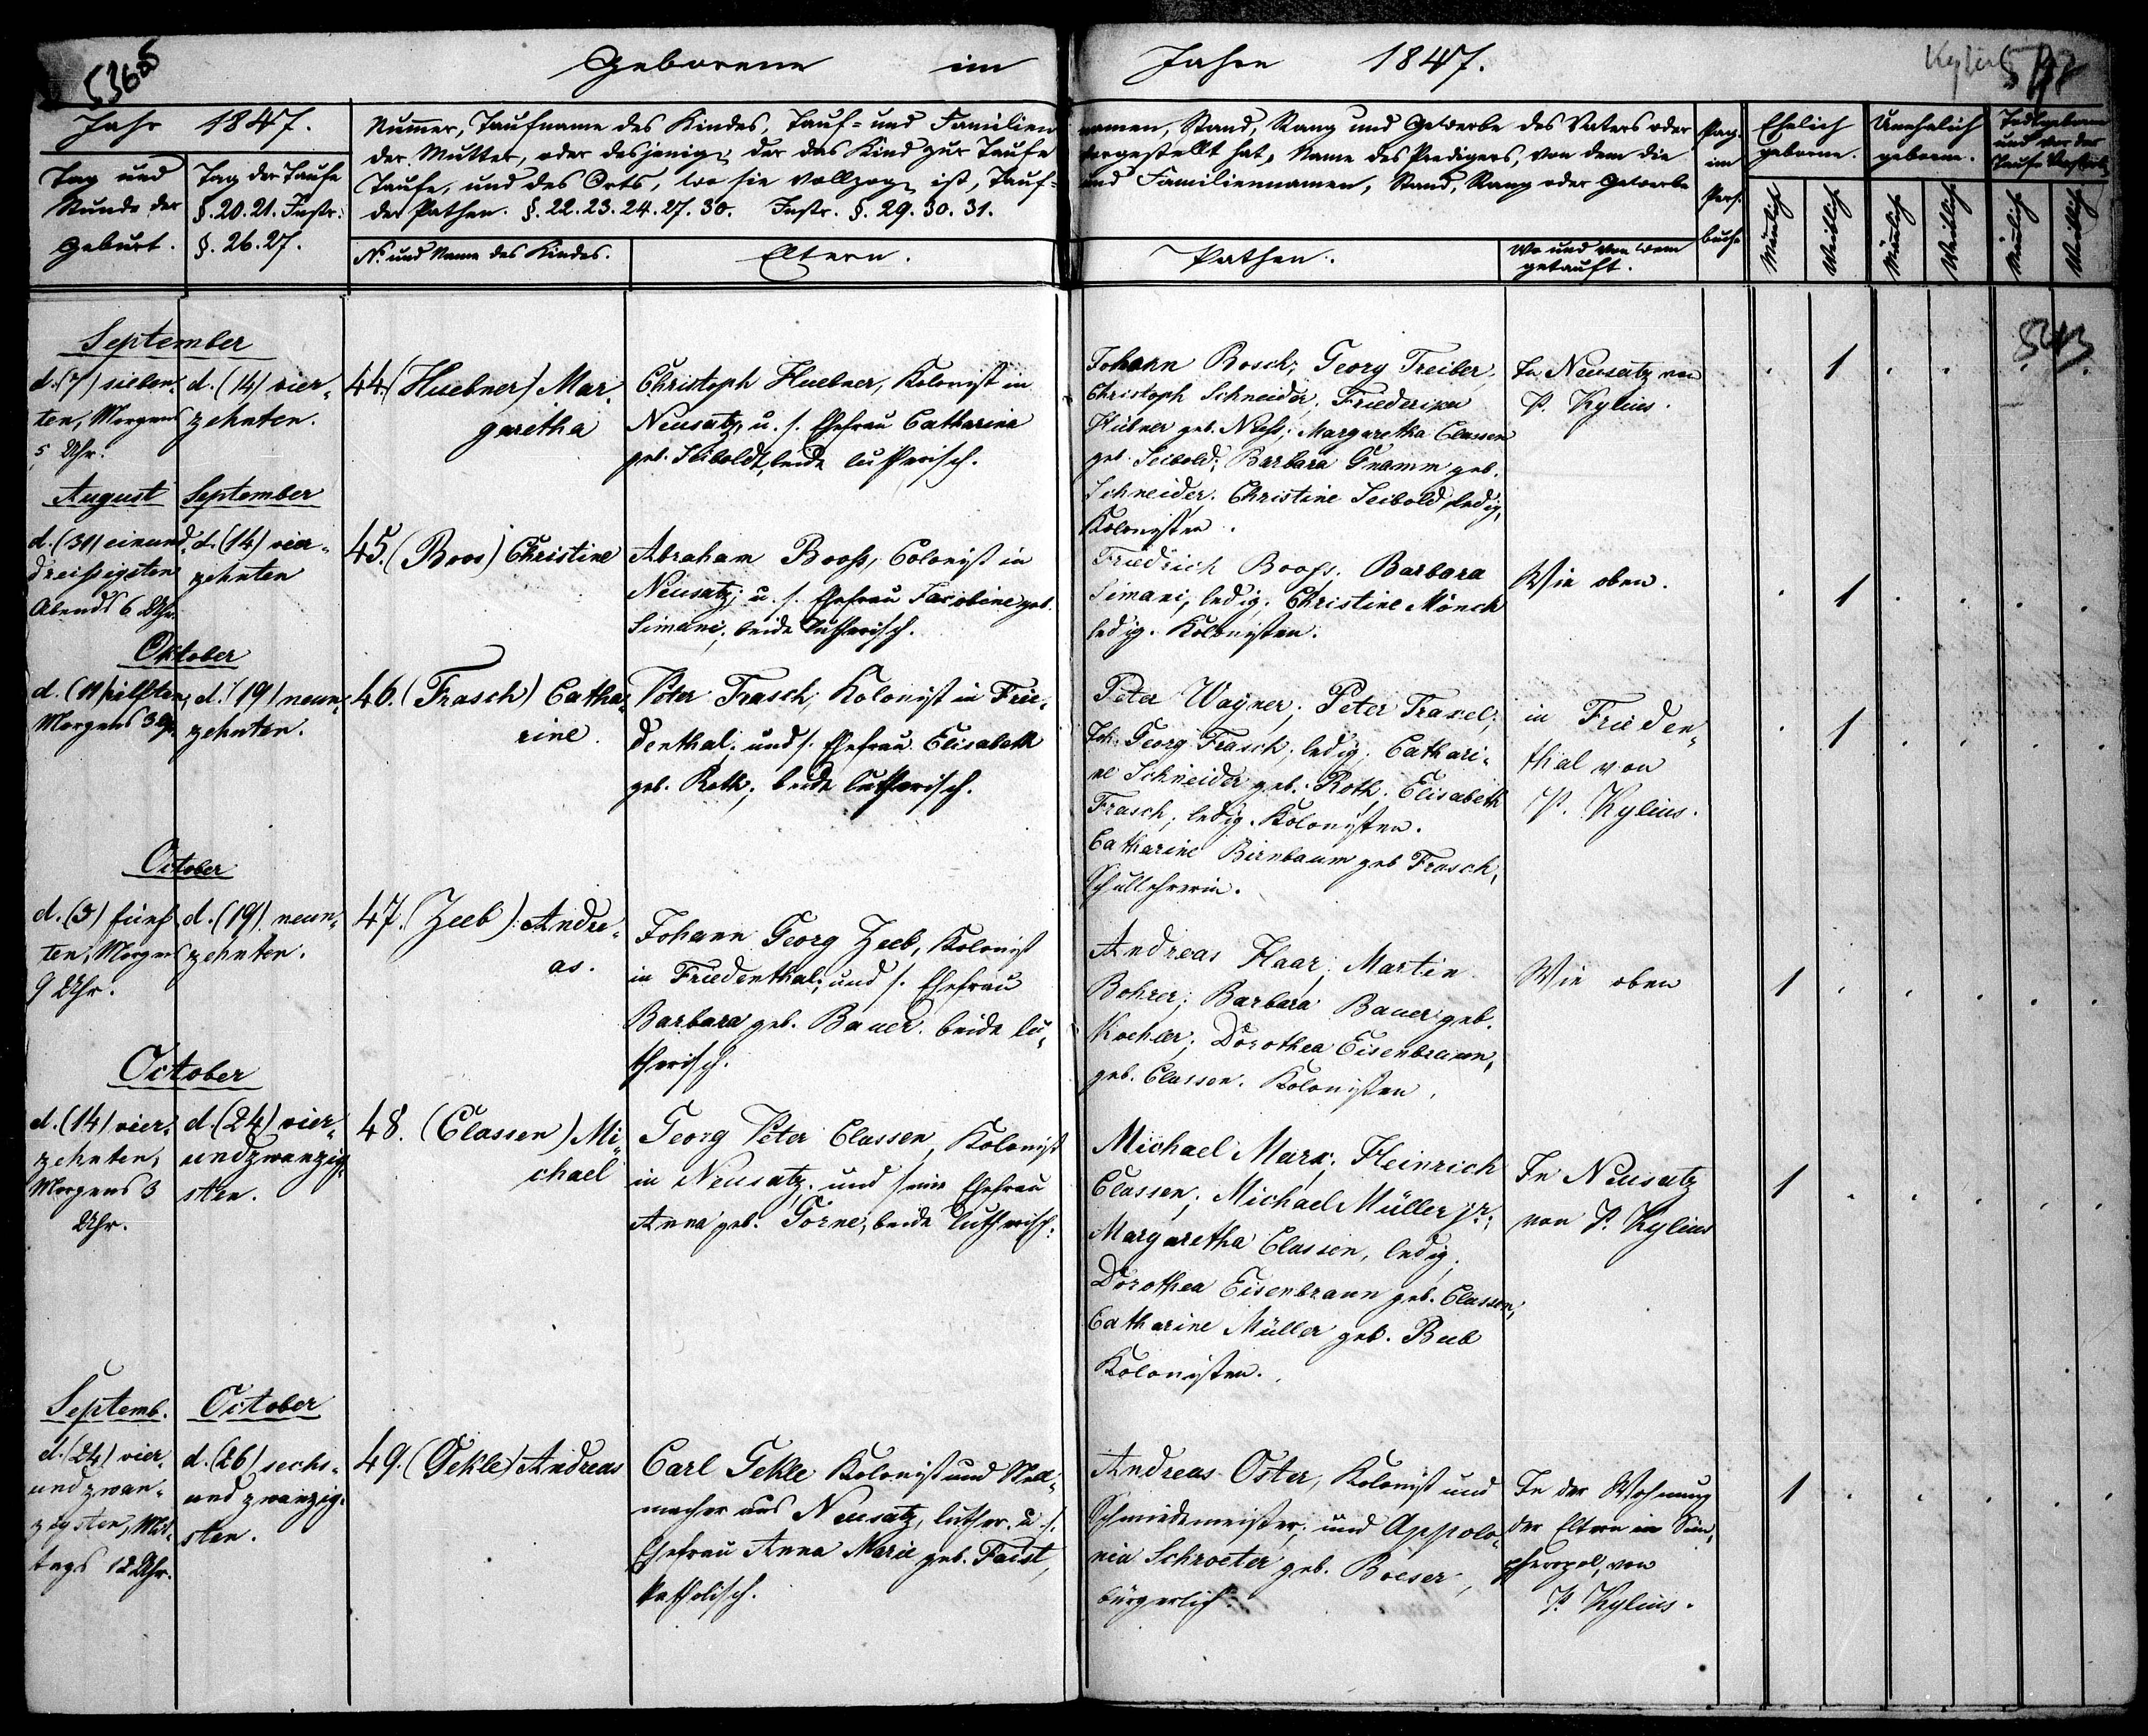 Geborene im Jahre 1847.
Jahr 1847.
Tag und
Stunde der
Geburt.
Tag der Taufe
§. 20. 21. Instr.
§. 26. 27.
Nummer, Taufname des Kindes, Tauf- und Familien
namen, Stand, Rang und Gewerbe des Vaters oder
der Mutter, oder desjenigen der das Kind zur Taufe
vorgestellt hat, Name des Predigers, von dem die
Taufe, und des Orts, wo sie vollzogen ist, Tauf-
und Familiennamen, Stand, Rang oder Gewerbe
der Pathen. §. 22. 23. 24. 27. 30. Instr. §. 29. 30. 31.
No. und Name des Kindes.
Eltern.
Pathen.
Wo und von wem
getauft.
Pag.
im
Pers.
buche
Ehelich
geborene.
Unehelich
geborene.
Todtgeborene
und vor der
Taufe Verstorb.
Männlich
Weiblich
Männlich
Weiblich
Männlich
Weiblich
September
d. (7) sieben-
ten, Morgens
5 Uhr.
d. (14) vier-
zehnten.
44. (Huebner) Mar-
garetha
Christoph Huebner, Kolonist in
Neusatz, u. s. Ehefrau Catharina
geb. Seiboldt, beide lutherisch.
Johann Bosch; Georg Treiber,
Christoph Schneider, Friederika
Hübner geb. Neß; Margaretha Classen
geb. Seibold; Barbara Gramm geb.
Schneider. Christine Seibold ledig,
Kolonisten.
In Neusatz von
P. Kylius.
1
August
September
d. (31) einund
dreißigsten
Abends 6 Uhr.
d. (14) vier-
zehnten
45. (Boos) Christine
Abraham Booß, Colonist in
Neusatz; u. s. Ehefrau Jacobine geb.
Simani, beide lutherisch.
Friedrich Booß; Barbara
Simani, ledig; Christine Mönch
ledig. Kolonisten.
Wie oben.
1
Oktober
d. (11) eilften,
Morgens 3 U.
d. (19) neun-
zehnten.
46. (Frasch) Catha-
rine.
Peter Frasch, Kolonist in Frie-
denthal; und s. Ehefrau Elisabeth
geb. Roth; beide lutherisch.
Peter Wagner; Peter Traxel;
Joh. Georg Frasch, ledig; Cathari-
ne Schneider geb. Roth. Elisabeth
Frasch, ledig. Kolonisten.
Catharine Birnbaum geb Frasch,
Schullehrerin.
in Frieden-
thal von
P. Kylius.
1
October
d. (5) fünf
ten, Morgens
9 Uhr.
d. (19) neun-
zehnten.
47. (Zeeb) Andre-
as.
Johann Georg Zeeb, Kolonist
in Friedenthal; und s. Ehefrau
Barbara geb. Bauer. beide lu-
therisch.
Andreas Haar; Martin
Bohrer; Barbara Bauer geb.
Koehler; Dorothea Eisenbraun,
geb. Classen. Kolonisten.
Wie oben
1
October
d. (14) vier-
zehnten,
Morgens 3
Uhr.
d. (24) vier-
undzwanzig-
sten.
48. (Classen) Mi-
chael
Georg Peter Classen, Kolonist
in Neusatz, und seine Ehefrau
Anna geb. Görne, beide lutherisch.
Michael Marx; Heinrich
Classen; Michael Müller jr.;
Margaretha Classen, ledig,
Dorothea Eisenbraun geb. Classen;
Catharine Müller geb. Beeb
Kolonisten.
In Neusatz
von P. Kylius
1
Septemb.
October
d. (24) vier-
undzwan-
zigsten, Mit-
tags 12 Uhr.
d. (26) sechs-
undzwanzig-
sten.
49. (Gekle) Andreas
Carl Gekle Kolonist und
macher aus Neusatz, luther. u. s.
Ehefrau Anna Marie geb. Faist,
katholisch.
Andreas Oster, Kolonist und
Schmiedemeister; und Appolo-
nia Schroeter geb. Boeser,
bürgerlich.
In der Wohnung
der Eltern in Sim-
pheropol, von
P. Kylius.
1